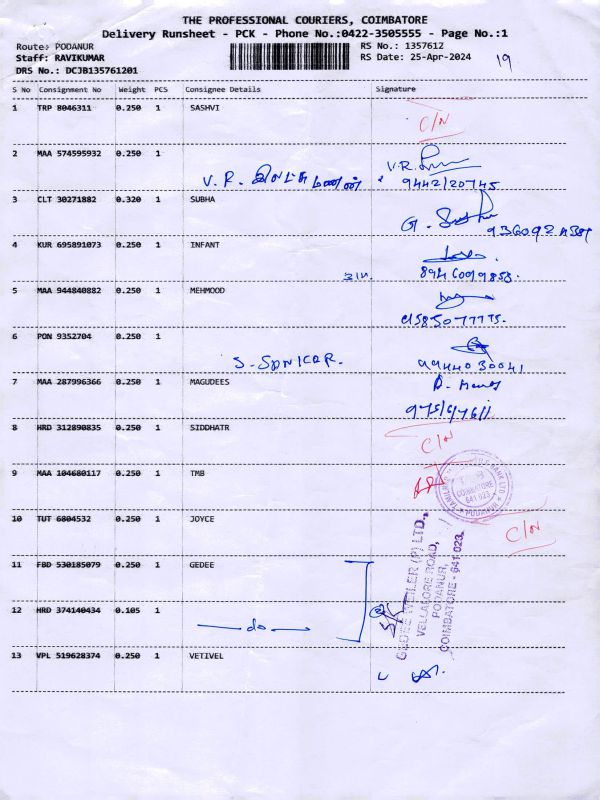 THE PROFESSIONAL COURIERS, COIMBATORE
Delivery Runsheet - PCK - Phone No.:0422-3505555 - Page No.:1
Route: PODANUR RS No.: 1357612
Staff: RAVIKUMAR RS Date: 25-Apr-2024 19
DRS No.: DCJB135761201
S No Consignment No Weight PCS Consignee Details Signature
1 TRP 8046311 0.250 1 SASHVI
C/N
2 MAA 574595932 0.250 1
V.R.
V.R.
9442120745
3 CLT 30271882 0.320 1 SUBHA
G.
4 KUR 695891073 0.250 1 INFANT
5 MAA 944840882 0.250 1 MEHMOOD
6 PON 9352704 0.250 1
S-
9944030041
7 MAA 287996366 0.250 1 MAGUDEES
8 HRD 312890835 0.250 1 SIDDHATR
C/N
9 MAA 104680117 0.250 1 TMB
COIMBATORE
641 023
PODANUR
10 TUT 6804532 0.250 1 JOYCE
C/N
11 FBD 530185079 0.250 1 GEDEE
GEDEE WEILER (P) LTD.,
VELLALORE ROAD,
PODANUR,
COIMBATORE - 641 023.
12 HRD 374140434 0.105 1
do
13 VPL 519628374 0.250 1 VETIVEL